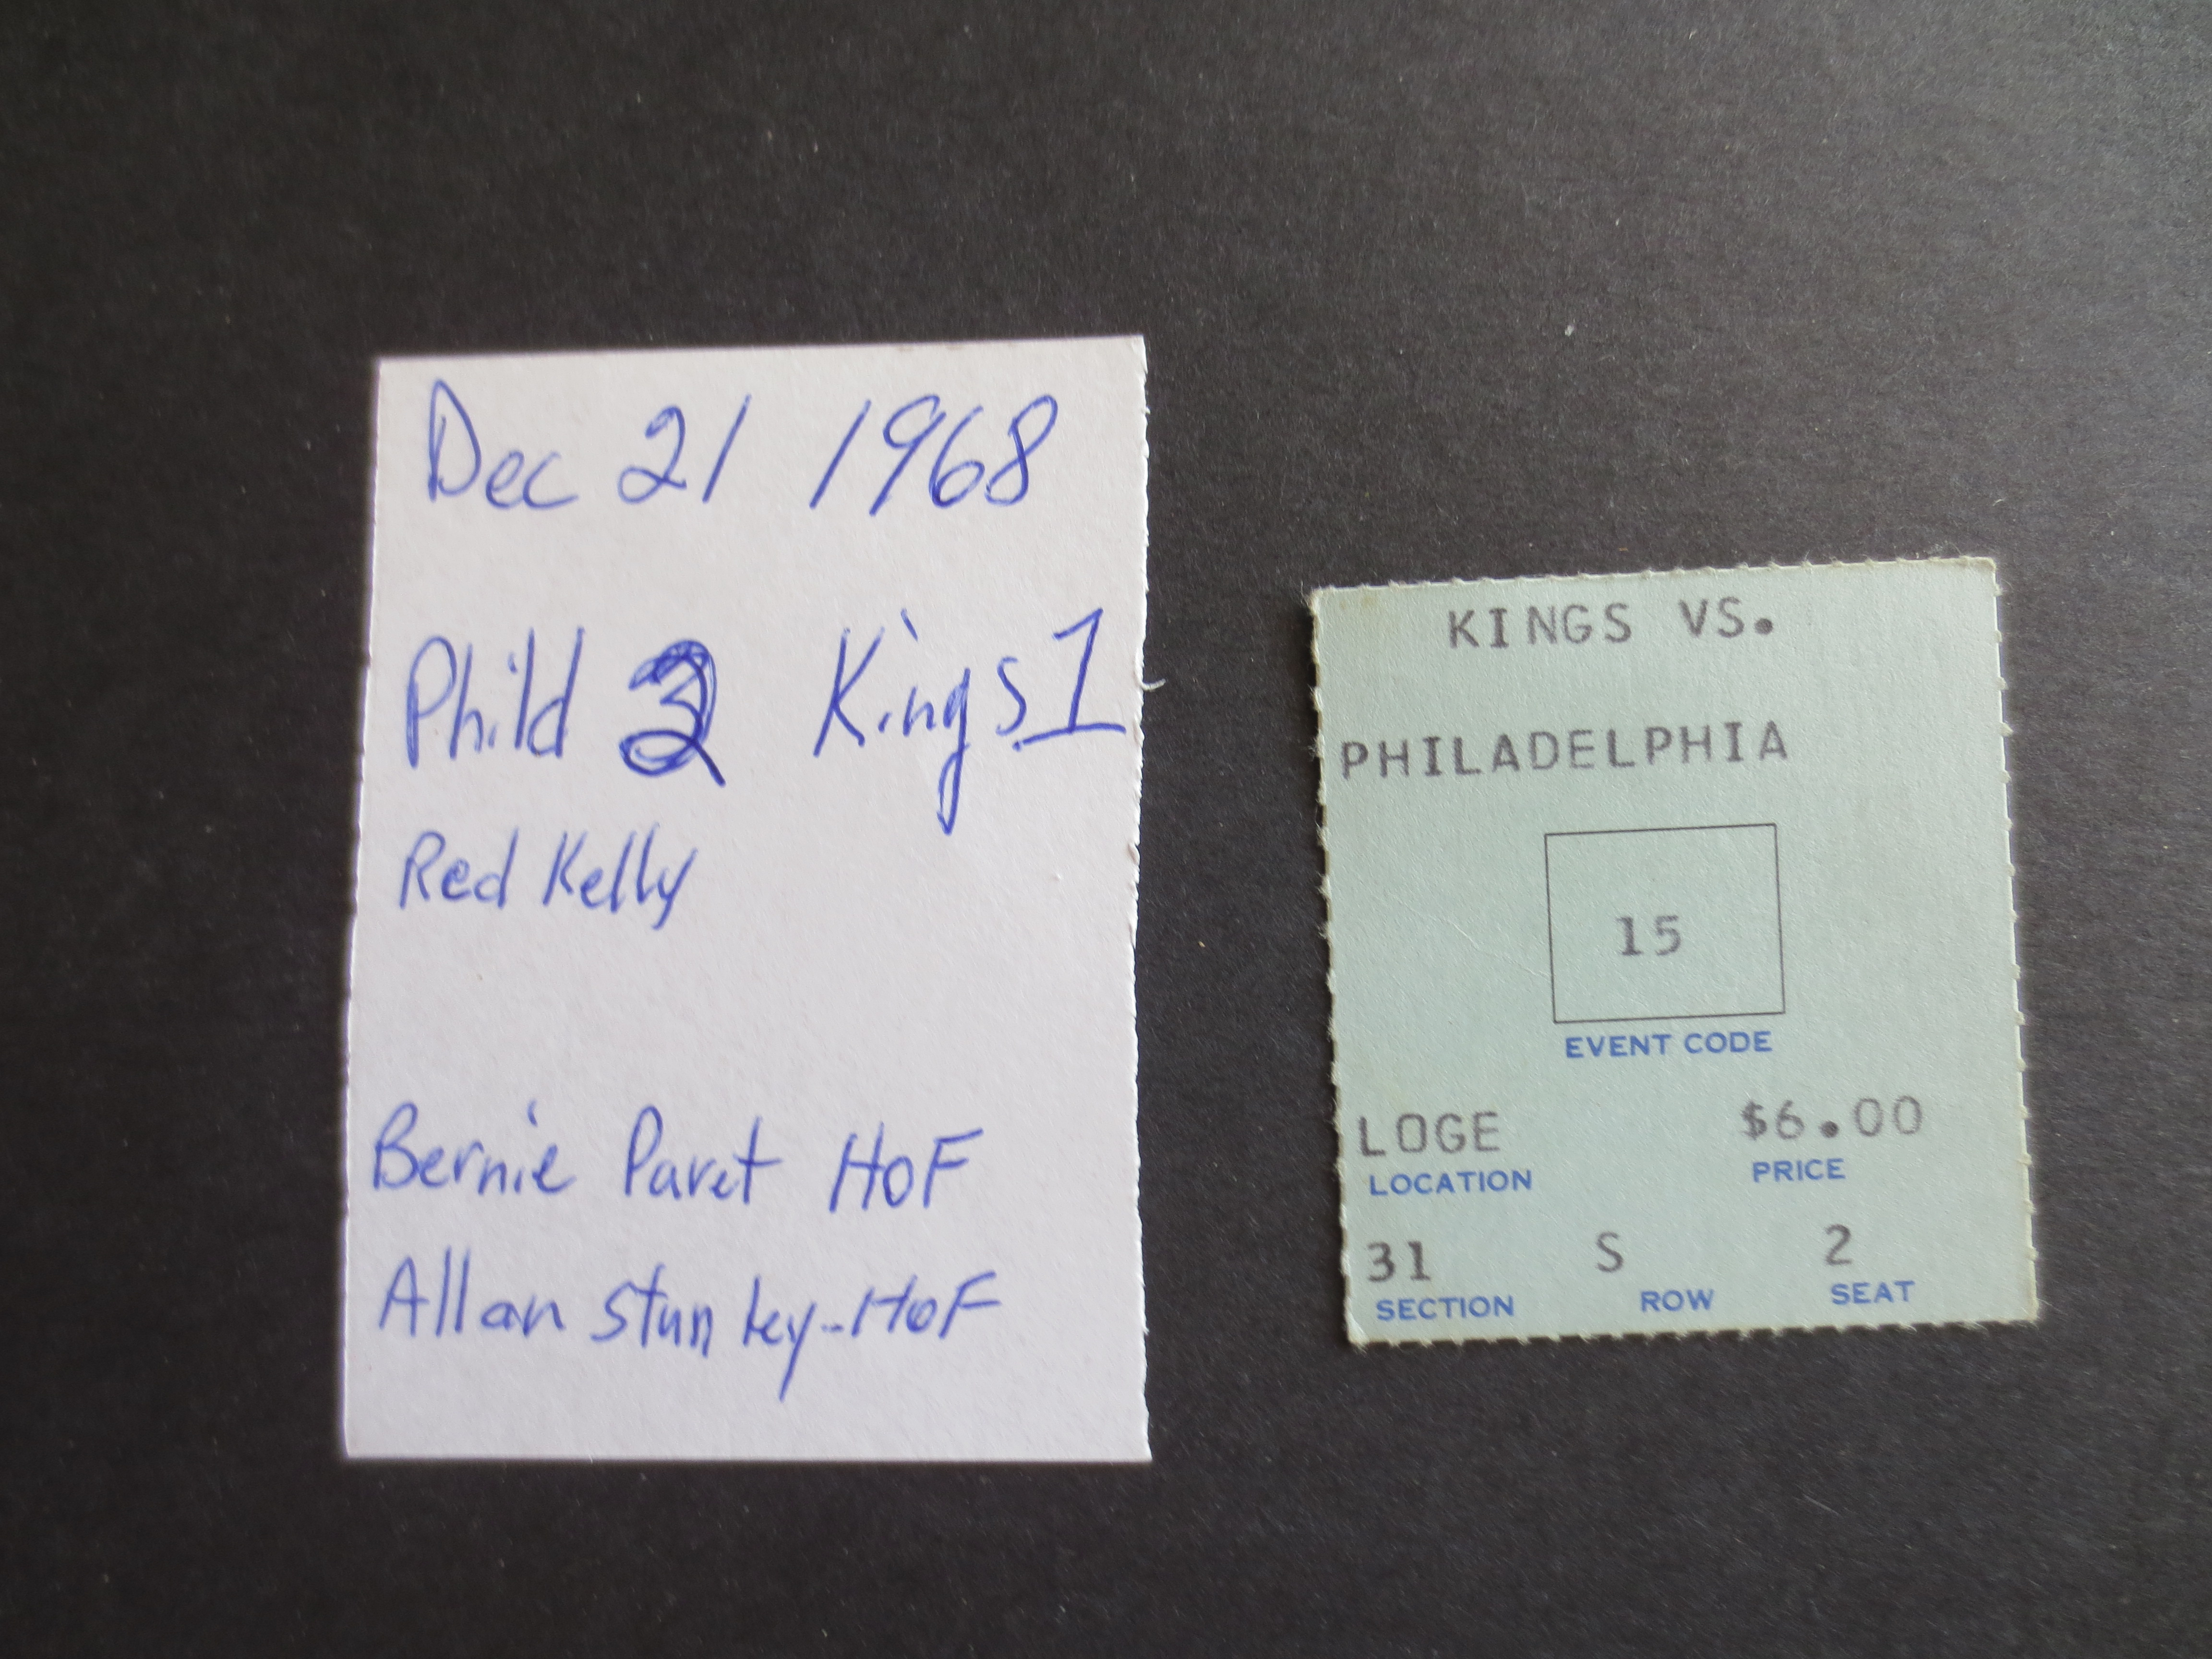 Dec 21 1968
Phild Kings 1
Red Kelly
Bernie Paret HOF
Allan Stanley-HOF
KINGS VS.
PHILADELPHIA
15
EVENT CODE
LOGE $6.00
LOCATION PRICE
31 S 2
SECTION ROW SEAT